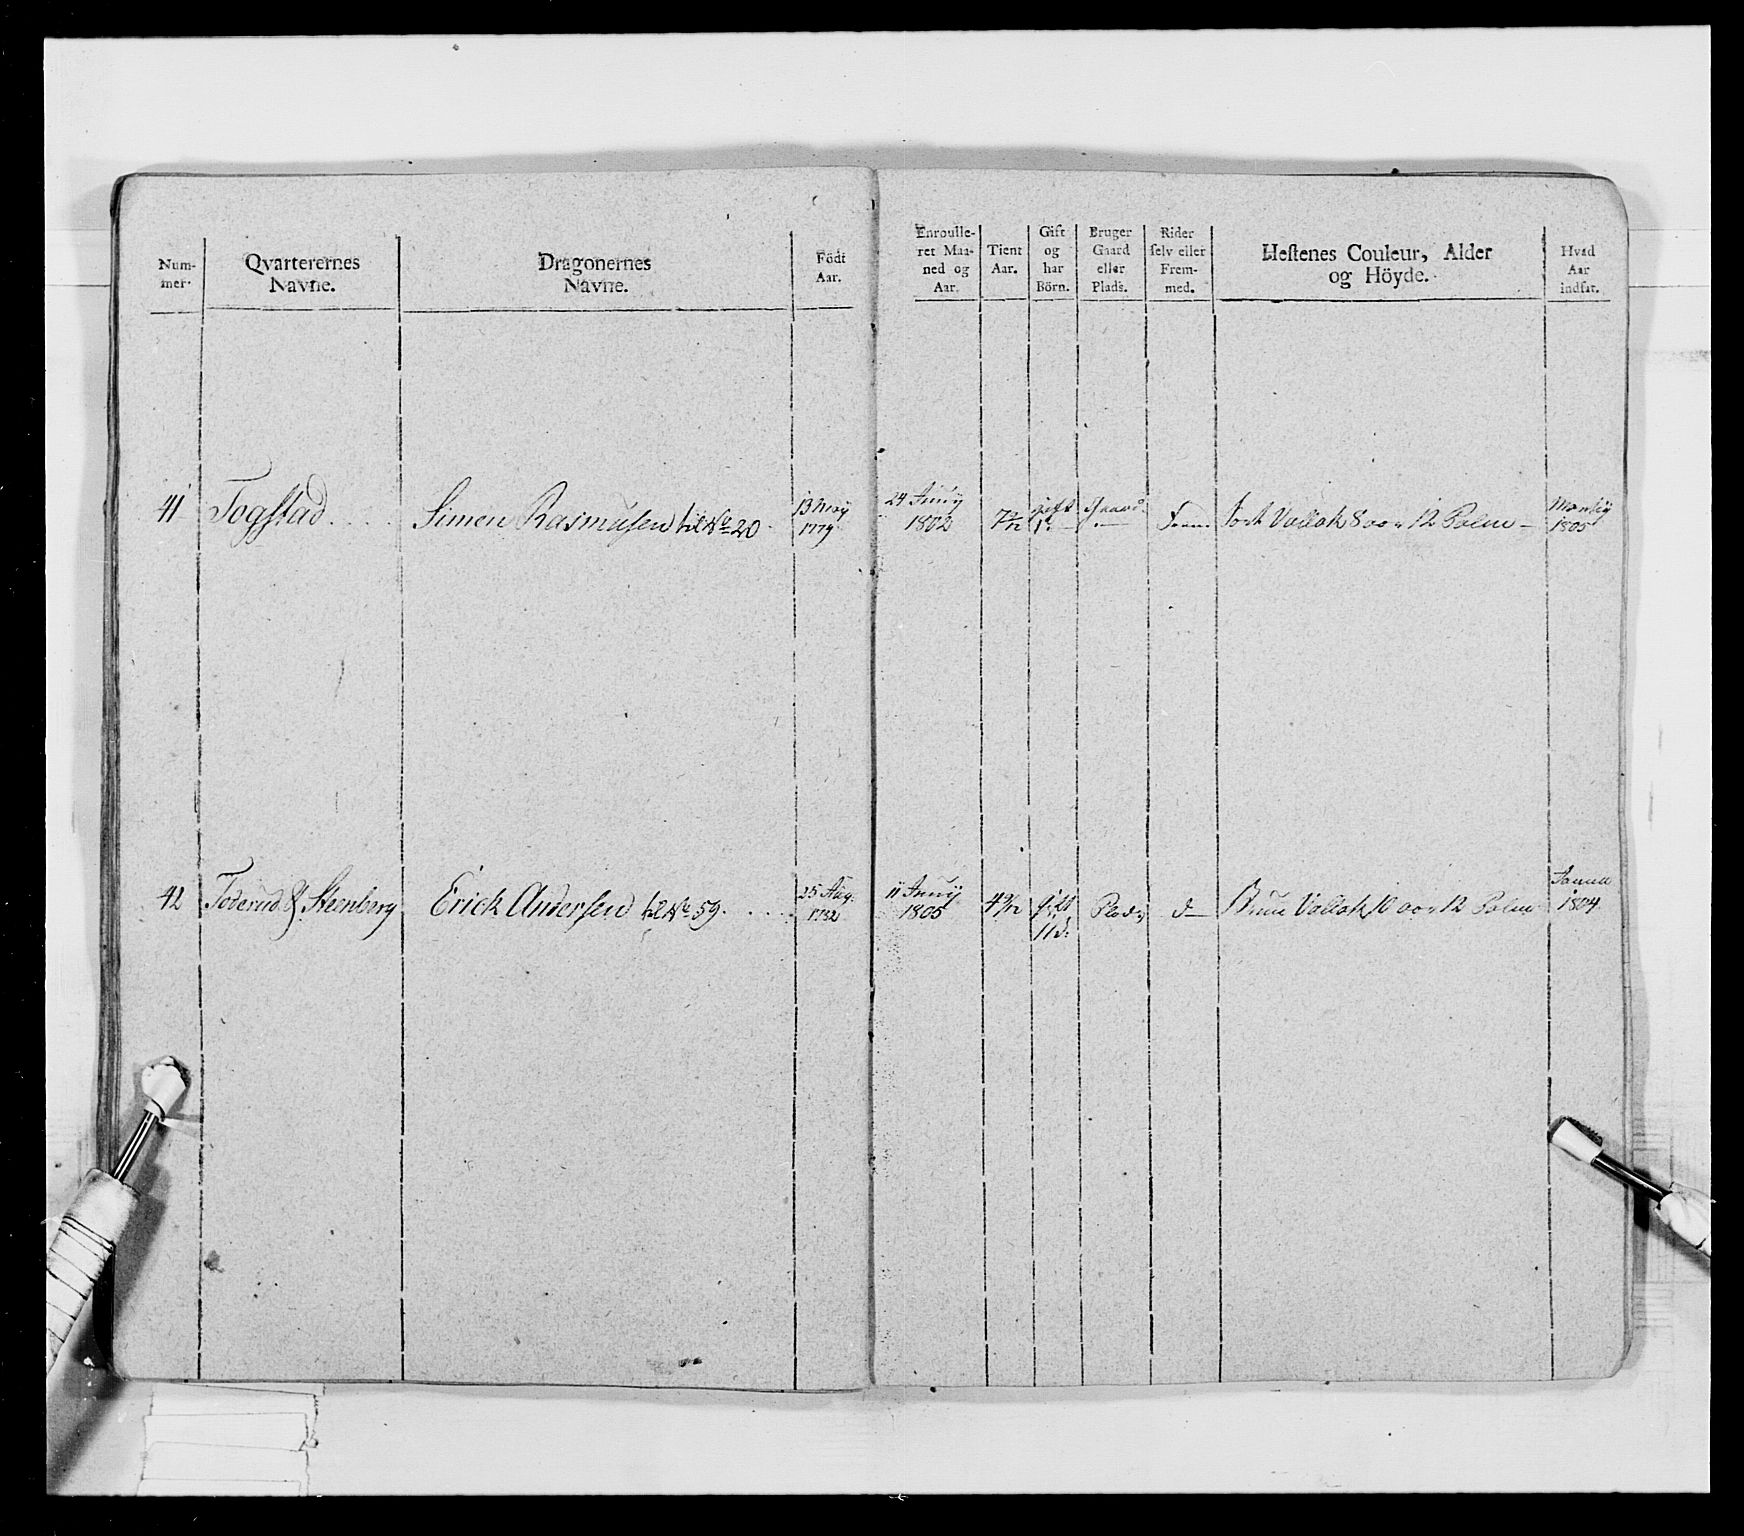 Num-
mer.
Qvarterernes
Navne.
Dragonernes
Navne.
Födt
Aar.
Enroulle-
ret Maa-
ned og
Aar.
Tient
Aar.
Gift
og
har
Börn.
Bruger
Gaard
eller
Plads.
Rider
selv eller
Frem-
med.
Hestenes Couleur, Alder
og Höyde.
Hvad
Aar
indsat.
41 Togstad Simen Rasmussen til No 20
1779
24 Juny
1802
gift
1
Gaard
Frem.
Sort Vallak 8 aar 12 Palm
1805
42 Toderud & Steenberg Erick Andersen til No 59
25 Aug.
1782
11 Juny
1805
4 9/12
gift
11d.
Plads
do
Brun Vallak 10 aar 12 Palm
1804